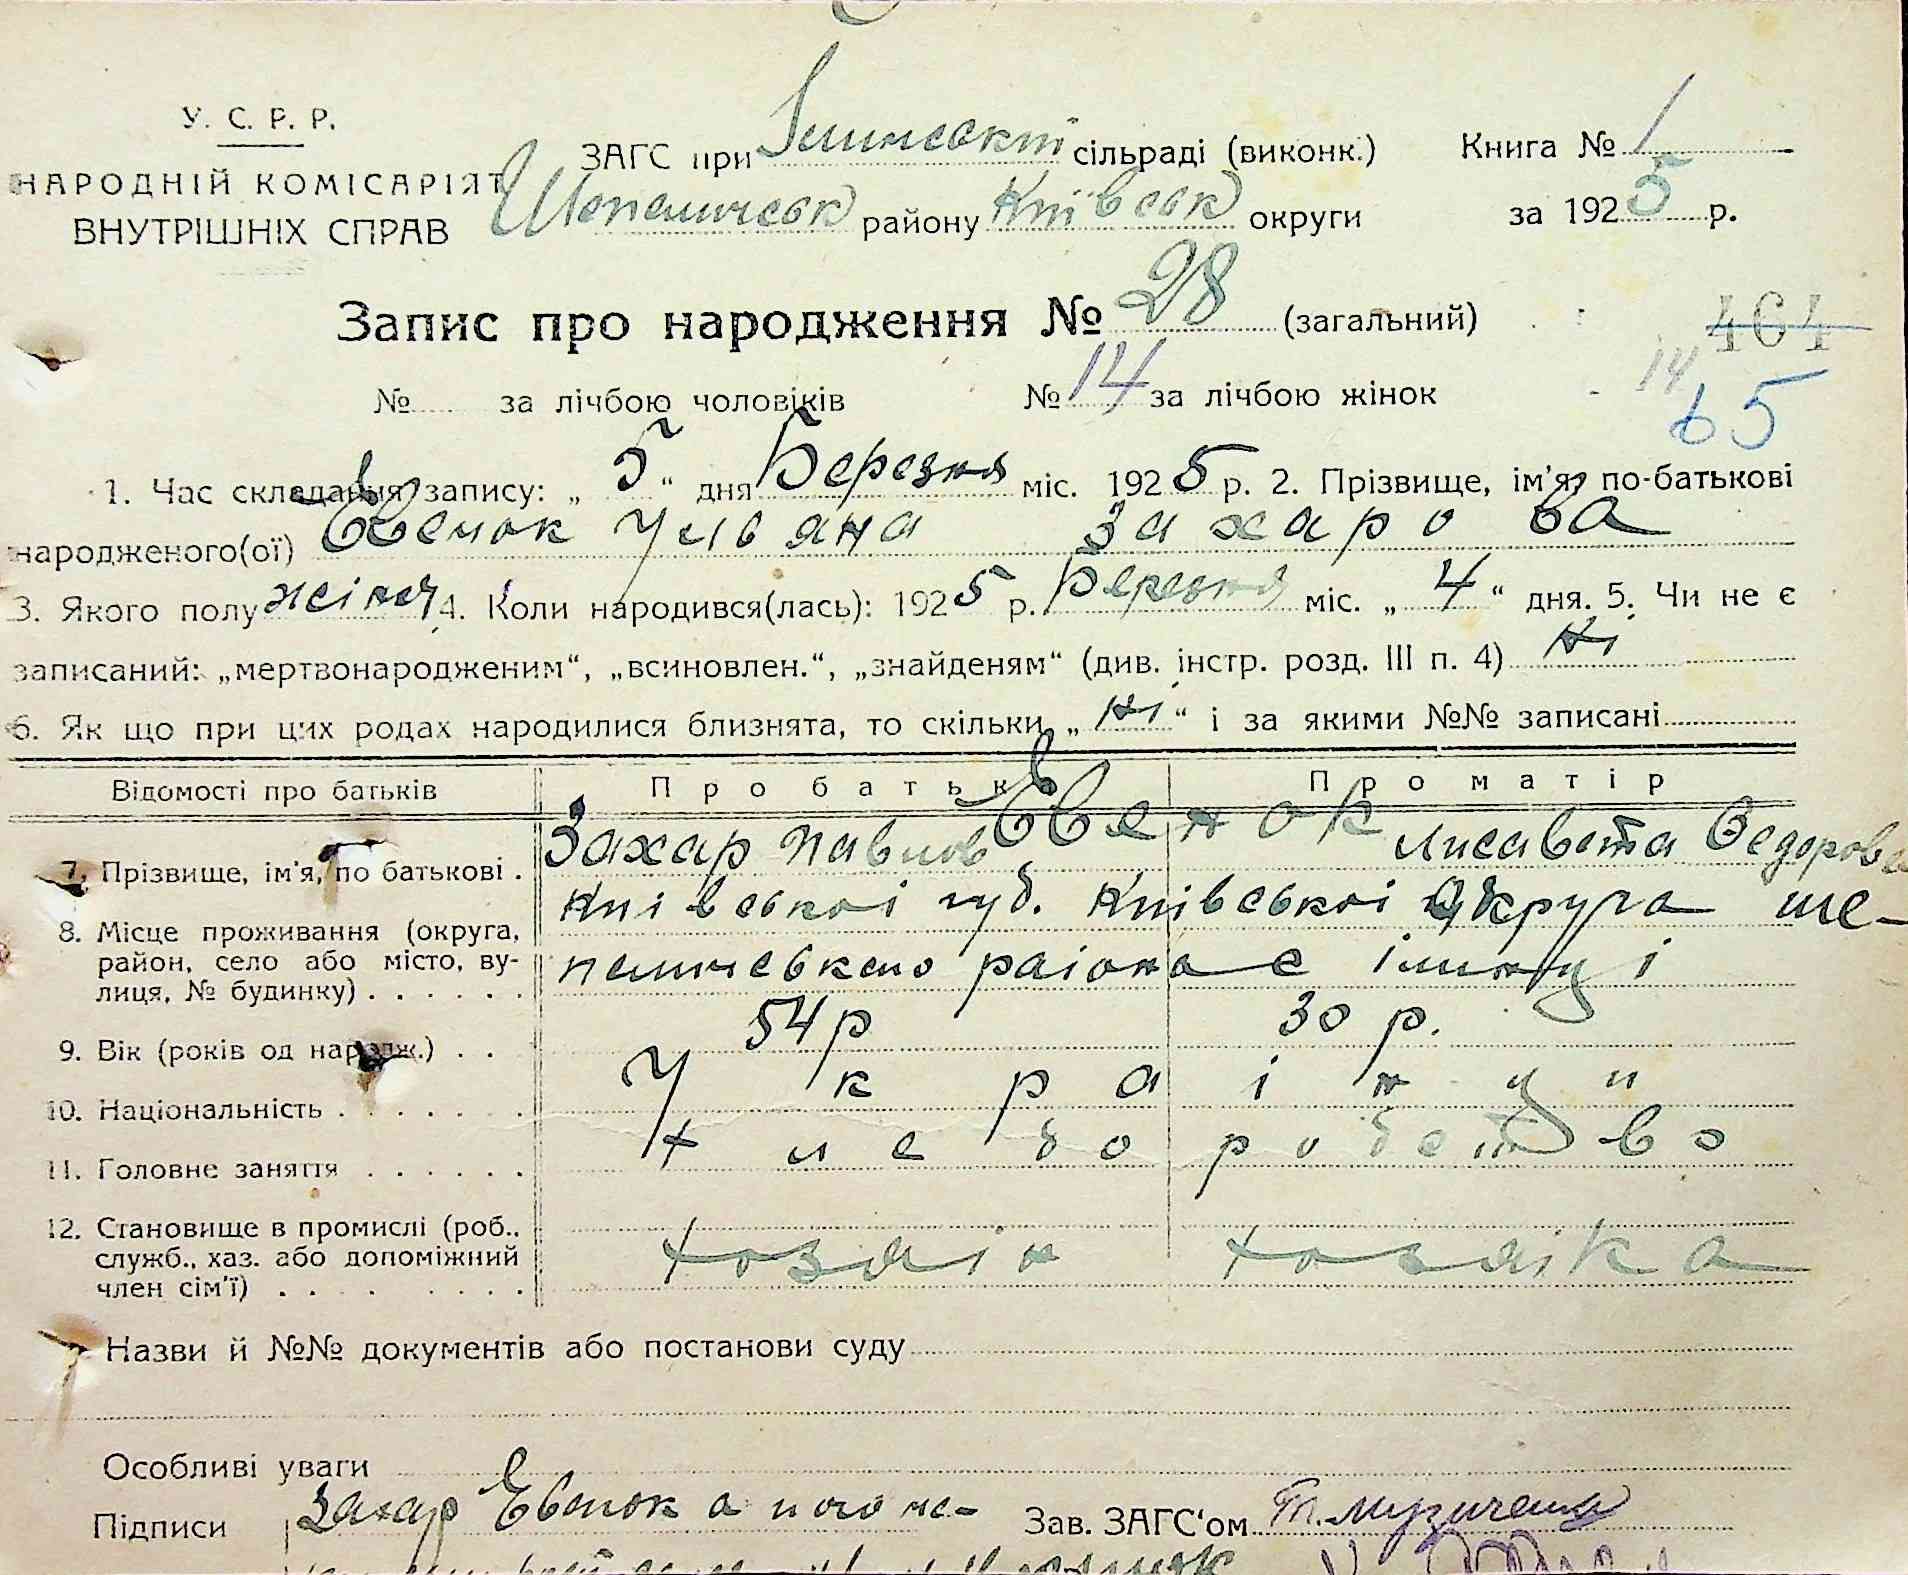 У. С. Р. Р.
НАРОДНІЙ КОМІСАРІЯТ
ВНУТРІШНІХ СПРАВ
ЗАГС при сільраді (виконк.)
Шепеличеськ району Київськ округи
Книга № 1
за 1925 р.
Запис про народження № 28 (загальний)
464
№ за лічбою чоловіків № 14 за лічбою жінок
14
65
1. Час складання запису: „ 5 “ дня Березня міс. 1925 р. 2. Прізвище, ім'я, по-батькові
народженого(ої) Євенок Ульяна Захарова
3. Якого полу жіноч 4. Коли народився(лась): 1925 р. Березня міс. „ 4 “ дня. 5. Чи не є
записаний: „мертвонародженим“, „всиновлен.“, „знайденям“ (див. інстр. розд. III п. 4) ні
6. Як що при цих родах народилися близнята, то скільки „ ні “ і за якими №№ записані
Відомості про батьків Про батька Про матір
7. Прізвище, ім'я, по батькові . Захар Павлов Євенок Лисавета Федорова
8. Місце проживання (округа, Київської губ. Київської округа ше-
район, село або місто, ву- пеличевкого раіона с
лиця, № будинку) . . . . . .
9. Вік (років од народж.) . . 54 р 30 р.
10. Національність . . . . . . . Українци
11. Головне заняття . . . . . . хлеборобство
12. Становище в промислі (роб.,
служб., хаз. або допоміжний хозяін хозяіка
член сім'ї) . . . . . . . .
Назви й №№ документів або постанови суду
Особливі уваги
Підписи Захар Євенок а
Зав. ЗАГС'ом